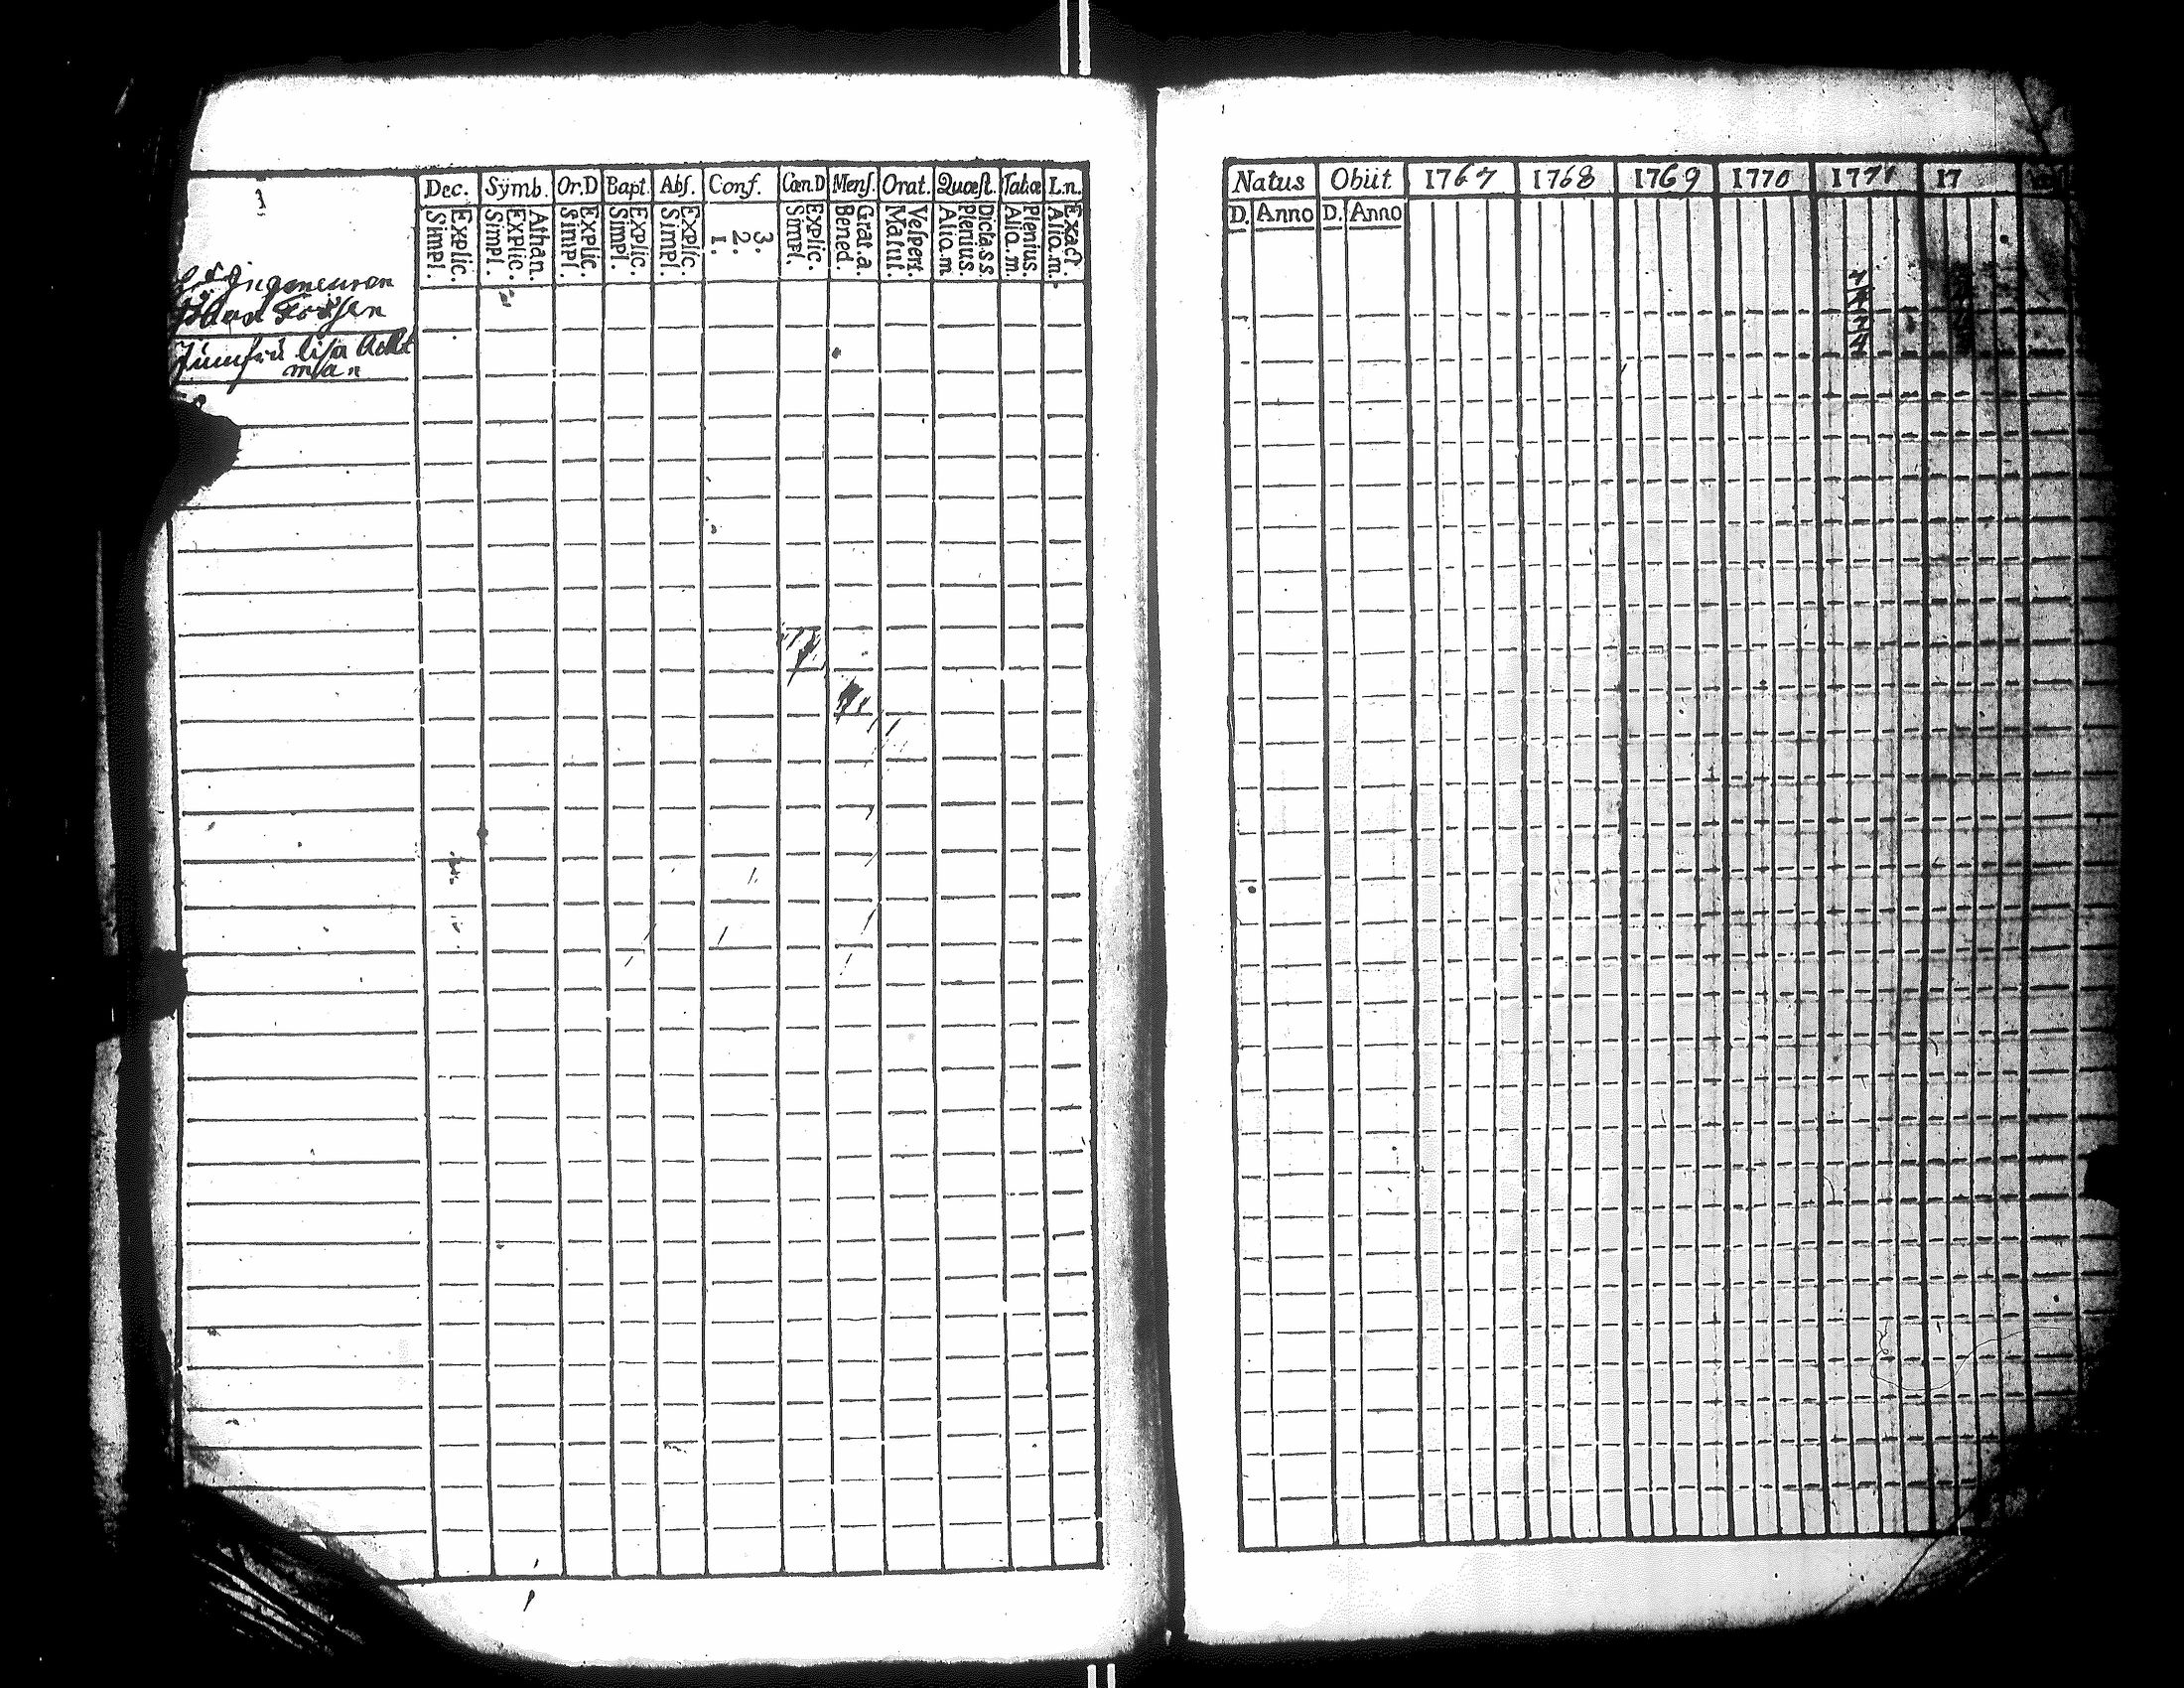 Dec. Sÿmb. Or.D Bapt. Abſ. Conf. Cœn.D Menſ. Orat. Quæſt. Tabæ L.n.
Explic. Simpl. Athan. Explic. Simpl. Explic. Simpl. Explic. Simpl. Explic. Simpl. 3. 2. 1. Explic. Simpl. Grat.a. Bened. Veſpert. Matut. Dicta.s.s. Plenius. Alio.m. Plenius. Alio.m. Exact. Alio.m.
Ingeneuren
Johan
Jumfru Lisa Ackt
man
Natus Obiit 1767 1768 1769 1770 1771 17
D. Anno D. Anno